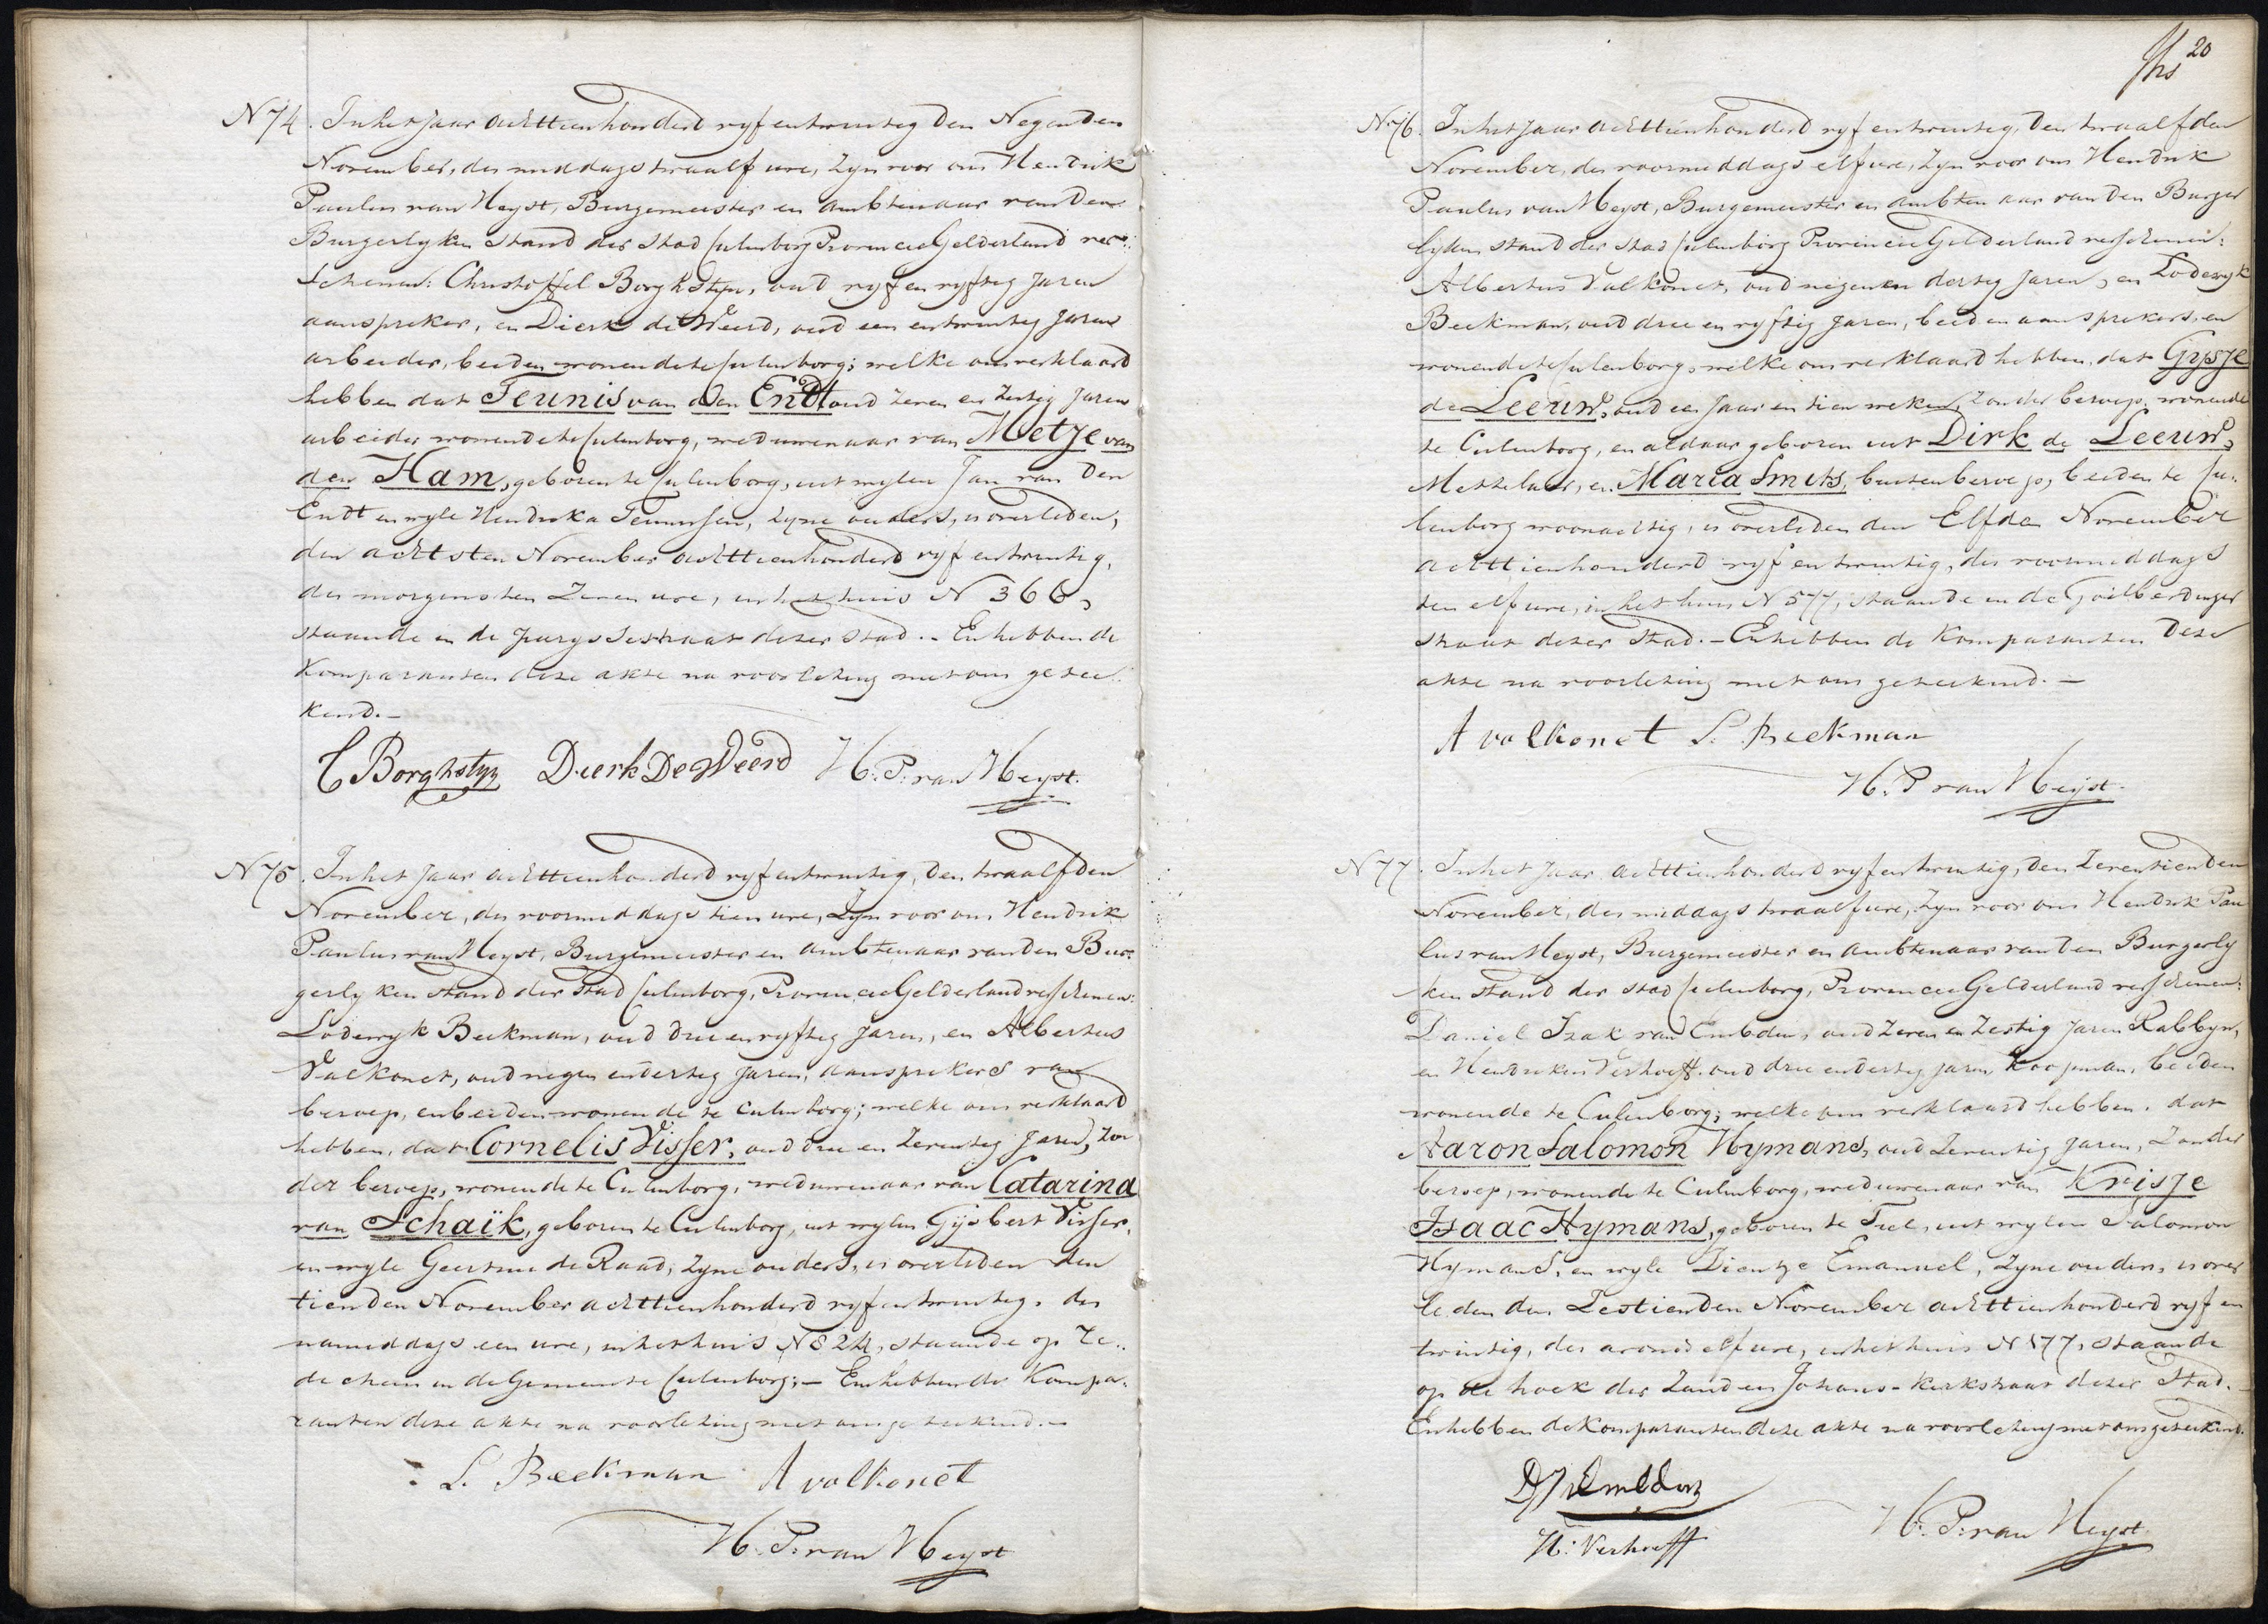 N 74. In het Jaar achttienhonderd vyf en twintig den Negenden
November, des middags twaalf ure, zyn voor ons Hendrik
Paulus van Heyst, Burgemeester en Ambtenaar van den
Burgerlyken Stand der Stad Culenborg Provincie Gelderland ver:
schenen: Christoffel Borghstyn, oud vyf en vyftig Jaren
aanspreker, en Dierk de Weerd, oud een en twintig Jaren
arbeider, beiden wonende te Culenborg; welke ons verklaard
hebben dat Teunis van den Endt oud zeven en zestig Jaren
arbeider wonende te Culenborg, weduwenaar van Metje van
den Ham, geboren te Culenborg, uit wylen Jan van den
Endt en wyle Hendrika Teunissen, zyne ouders, is overleden,
den achtsten November achttienhonderd vyf en twintig,
des morgens ten zeven ure, in het huis N 366,
staande in de straat dezer Stad. - En hebben de
Komparanten deze akte na voorlezing met ons getee:
kend. -
C Borghstyn Dierk De Weerd H. P. van Heyst.
N 75. In het Jaar achttienhonderd vyf en twintig, den twaalfden
November, des voormiddags tien ure, zyn voor ons Hendrik
Paulus van Heyst, Burgemeester en Ambtenaar van den Bur:
gerlyken Stand der Stad Culenborg, Provincie Gelderland verschenen:
Lodewyk Beekman, oud drie en vyftig Jaren, en Albertus
Valkonet, oud negen en dertig Jaren, aansprekers van
beroep, en beiden wonende te Culenborg; welke ons verklaard
hebben, dat Cornelis Visser, oud drie en zeventig Jaren, zon
der beroep, wonende te Culenborg, weduwenaar van Catarina
van Schaïk, geboren te Culenborg, uit wylen Gijsbert Visser,
en wyle Geertrui de Raad, zyne ouders, is overleden den
tienden November achttienhonderd vyf en twintig, des
namiddags een ure, in het huis N 824, staande op Re..
dichem in de Gemeente Culenborg; - En hebben de Kompa:
ranten deze akte na voorlezing met ons geteekend. -
L. Beekman A valkonet
H. P. van Heyst
20
N 76. In het Jaar achttienhonderd vyf en twintig, den twaalfden
November, des voormiddags elf ure, zyn voor ons Hendrik
Paulus van Heyst, Burgemeester en Ambtenaar van den Burger
lyken stand der Stad Culenborg Provincie Gelderland verschenen:
Albertus Valkonet, oud negen en dertig Jaren, en Lodewyk
Beekman, oud drie en vyftig Jaren, beiden aansprekers, en
wonende te Culenborg, welke ons verklaard hebben, dat Gysje
de Leeuw, oud een Jaar en tien weken, zonder beroep, wonende
te Culenborg, en aldaar geboren uit Dirk de Leeuw,
Metzelaar, en Maria Smits, buiten beroep, beiden te Cu:
lenborg woonachtig, is overleden den Elfden November
achttienhonderd vyf en twintig, des voormiddags
ten elf ure, in het huis N 577, staande in de Goilberdinger
straat dezer Stad. - En hebben de Komparanten deze
akte na voorlezing met ons geteekend. -
A valkonet L. Beekman
H. P van Heijst.
N 77. In het Jaar achttienhonderd vyf en twintig, den zeventienden
November, des middags twaalf ure, zyn voor ons Hendrik Pau
lus van Heyst, Burgemeester en Ambtenaar van den Burgerly
ken Stand der Stad Culenborg, Provincie Gelderland verschenen:
Daniel Izak van Embden, oud zeven en zestig Jaren Rabbyn,
en Hendrikus Verhoeff, oud drie en dertig Jaren Koopman, beiden
wonende te Culenborg; welke ons verklaard hebben, dat
Aaron Salomon Hymans, oud zeventig Jaren, zonder
beroep, wonende te Culenborg, weduwenaar van Krisje
Isaac Hymans, geboren te Tiel, uit wylen Salomon
Hymans, en wyle Dientje Emanuel, zyne ouders, is over
leden den Zestienden November achttienhonderd vyf en
twintig, des avonds elf ure, in het huis N 177, staande
op de hoek der Zand en Johans-Kerkstraat dezer Stad. -
En hebben de Komparanten deze akte na voorlezing met ons geteekend.
H: Verhoeff H. P. van Heyst.